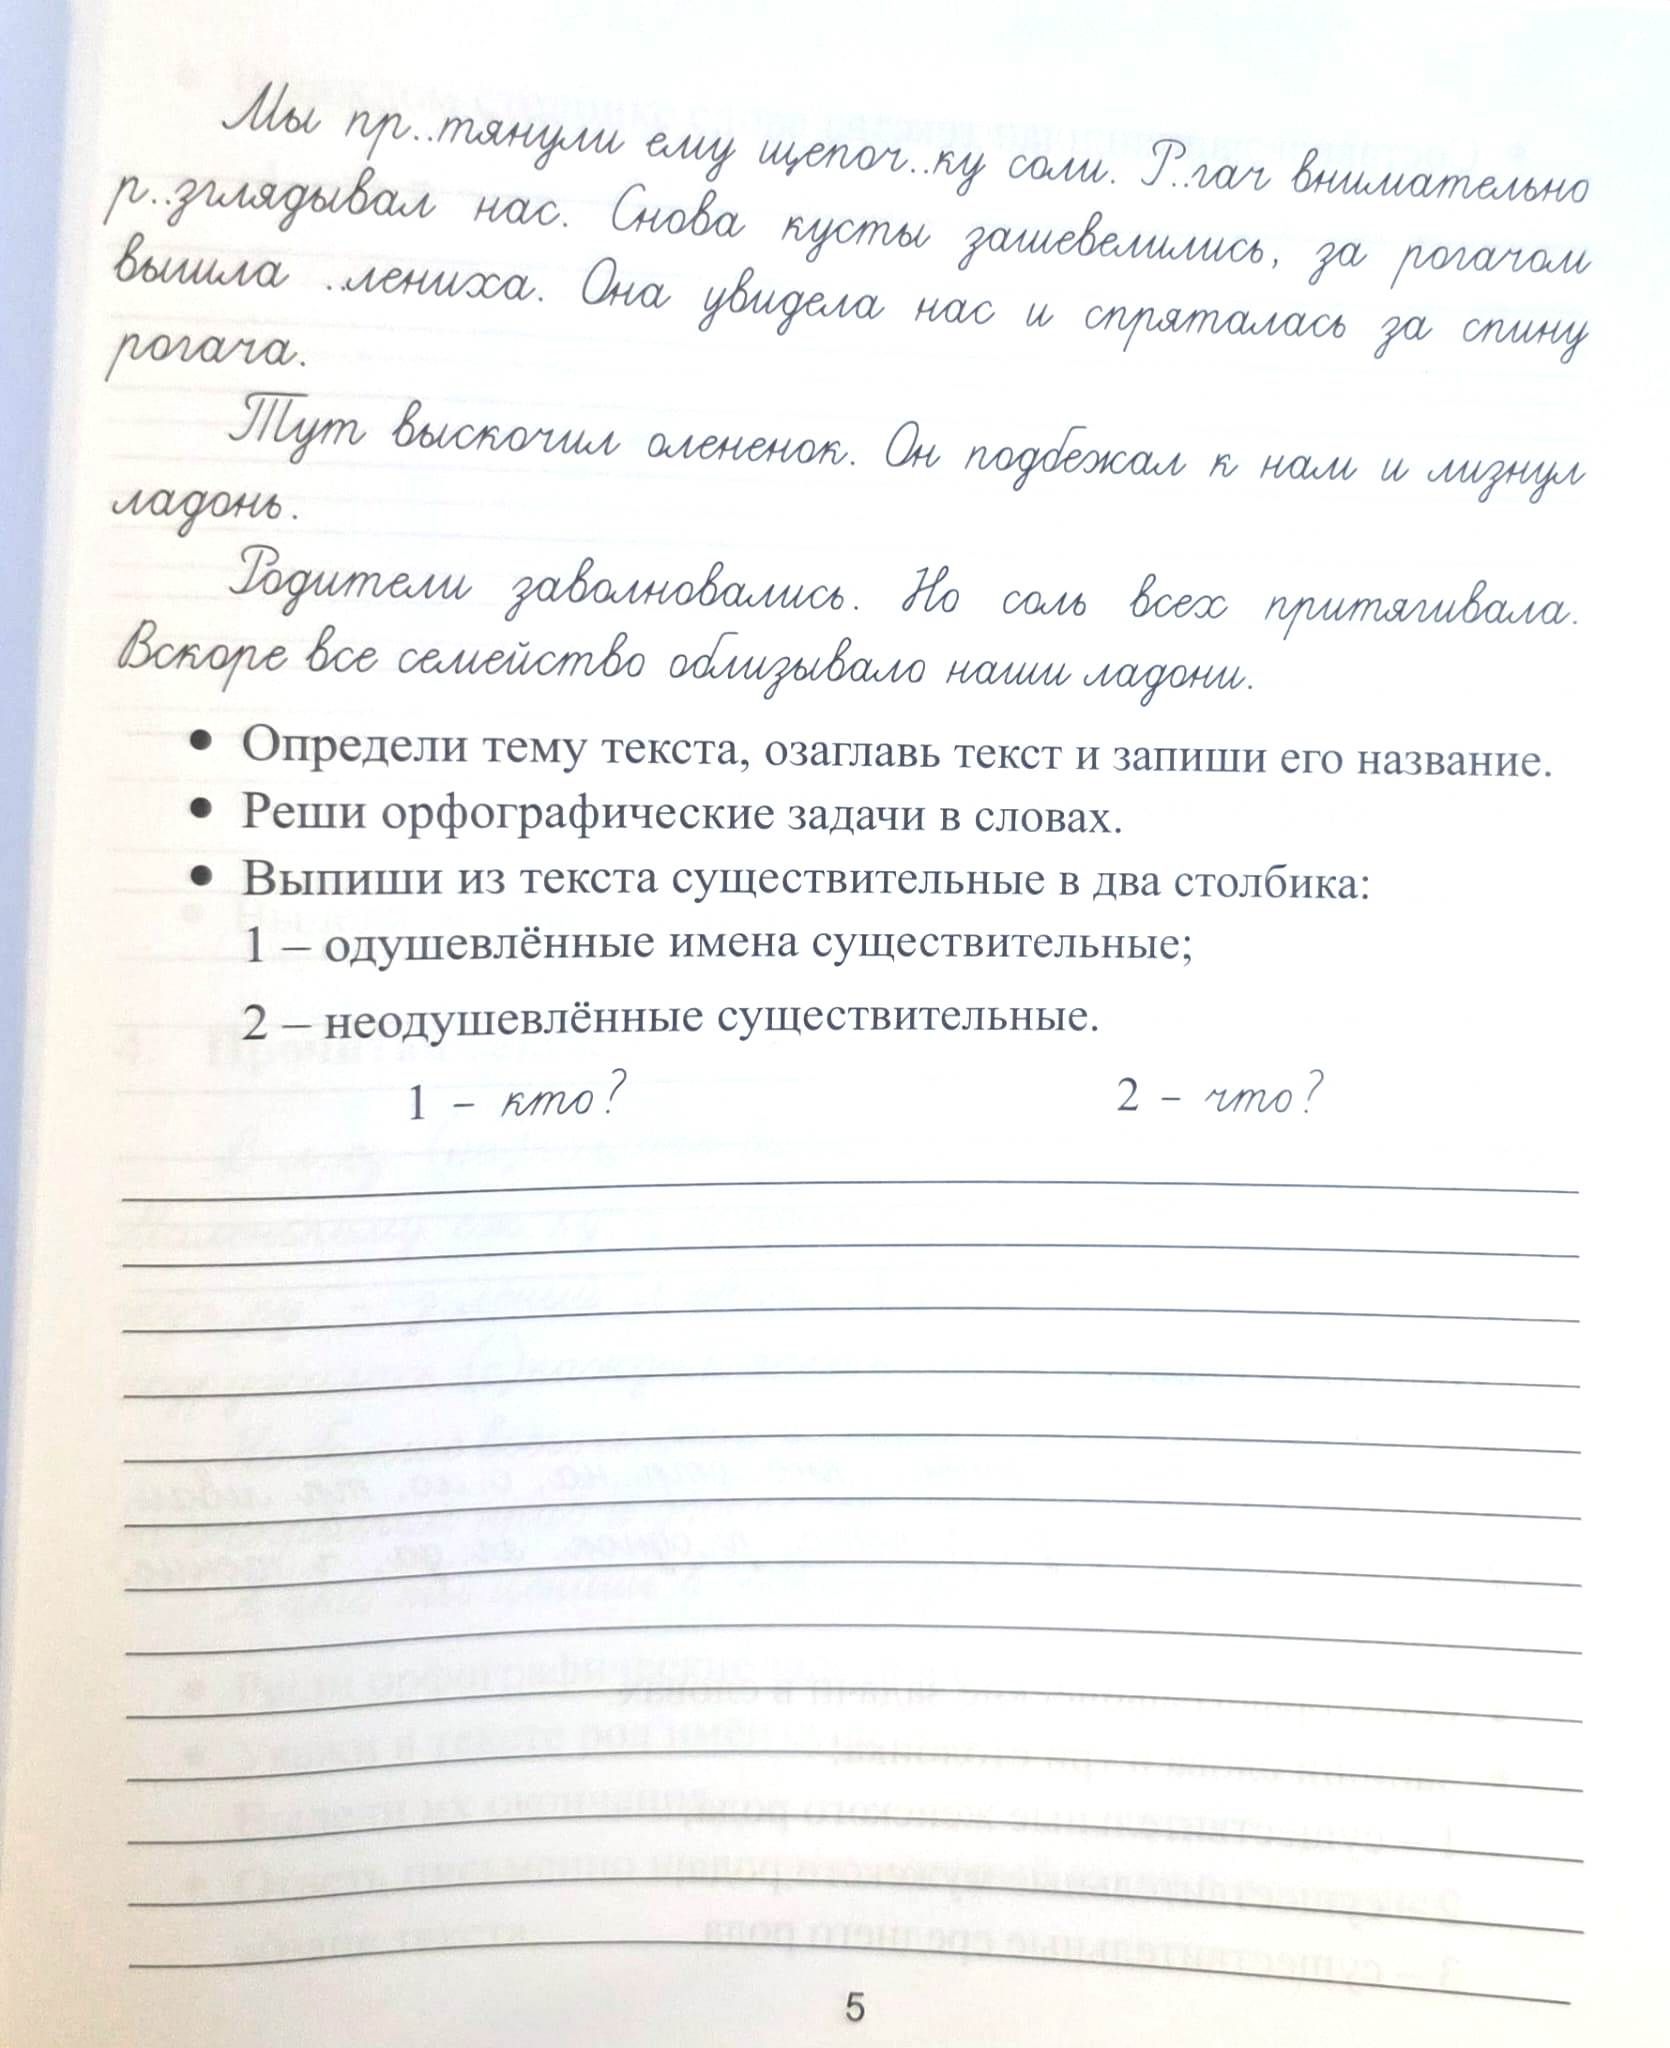 Мы пр..тянули ему щепоч..ку соли. Р..гач внимательно
р..зглядывал нас. Снова кусты зашевелились, за рогачом
вышла ..лениха. Она увидела нас и спряталась за спину
рогача.
Тут выскочил олененок. Он подбежал к нам и лизнул
ладонь.
Родители заволновались. Но соль всех притягивала.
Вскоре все семейство облизывало наши ладони.
• Определи тему текста, озаглавь текст и запиши его название.
• Реши орфографические задачи в словах.
• Выпиши из текста существительные в два столбика:
1 – одушевлённые имена существительные;
2 – неодушевлённые существительные.
1 – кто? 2 – что?
5